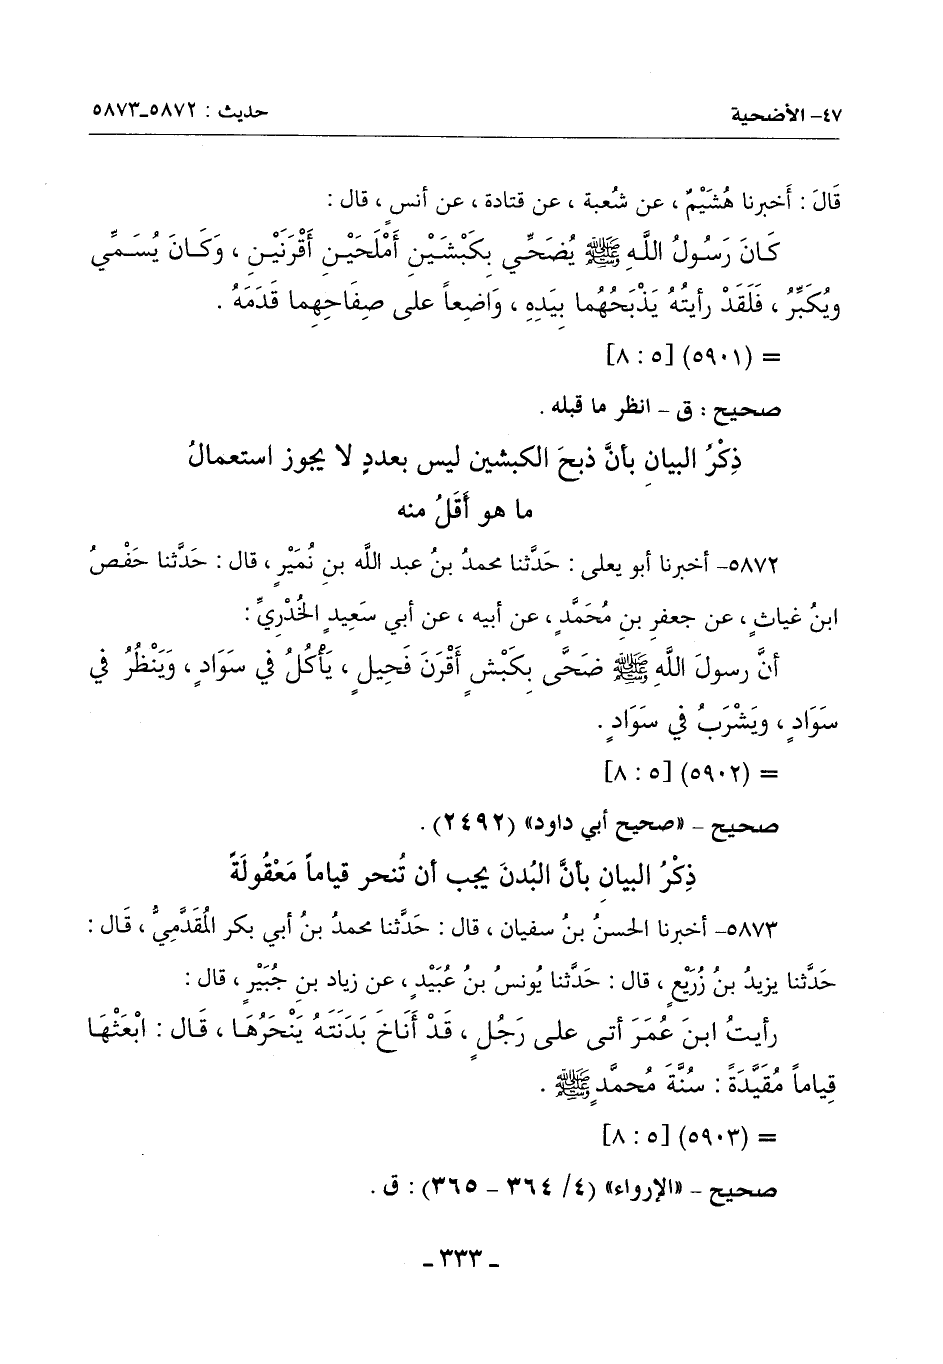 ٤٧- الأضحية حديث : ٥٨٧٢-٥٨٧٣
قَالَ : أَخبرنا هُشَيْمٌ ، عن شُعبة ، عن قتادة ، عن أنس ، قال :
كَانَ رَسُولُ اللَّهِ ﷺ يُضَحِّي بِكَبْشَيْنِ أَمْلَحَيْنِ أَقْرَنَيْنِ ، وَكَانَ يُسَمِّي
ويُكَبِّرُ ، فَلَقَدْ رأيتُهُ يَذْبَحُهُما بِيَدِهِ ، وَاضِعاً على صِفَاحِهِما قَدَمَهُ .
= (٥٩٠١) [٥ : ٨]
صحيح : ق - انظر ما قبله .
ذِكْرُ البيانِ بأنَّ ذبحَ الكبشين ليس بعددٍ لا يجوز استعمالُ
ما هو أَقَلُ منه
٥٨٧٢- أخبرنا أبو يعلى : حَدَّثنا محمدُ بنُ عبد اللَّه بنِ نُمَيْرٍ ، قال : حَدَّثنا حَفْصُ
ابنُ غياثٍ ، عن جعفرِ بنِ مُحَمَّدٍ ، عن أبيه ، عن أبي سَعِيدٍ الخُدْرِيِّ :
أنَّ رسولَ اللَّهِ ﷺ ضَحَّى بِكَبْشٍ أَقْرَنَ فَحِيلٍ ، يَأْكُلُ في سَوَادٍ ، وَيَنْظُرُ في
سَوَادٍ ، ويَشْرَبُ في سَوَادٍ .
= (٥٩٠٢) [٥ : ٨]
صحيح - «صحيح أبي داود» (٢٤٩٢) .
ذِكْرُ البيانِ بأنَّ البُدنَ يجب أن تُنحر قياماً مَعْقُولَةً
٥٨٧٣- أخبرنا الحسنُ بنُ سفيان ، قال : حَدَّثنا محمدُ بنُ أبي بكر المُقَدَّمِيُّ ، قَال :
حَدَّثنا يزيدُ بنُ زُرَيْعٍ ، قال : حَدَّثنا يُونسُ بنُ عُبَيْدٍ ، عن زياد بنِ جُبَيْرٍ ، قال :
رأيتُ ابنَ عُمَرَ أتى على رَجُلٍ ، قَدْ أَنَاخَ بَدَنَتَهُ يَنْحَرُهَا ، قَال : ابْعَثْهَا
قِياماً مُقَيَّدَةً : سُنَّةَ مُحمَّدٍ ﷺ .
= (٥٩٠٣) [٥ : ٨]
صحيح - «الإرواء» (٤/ ٣٦٤ - ٣٦٥) : ق .
- ٣٣٣ -